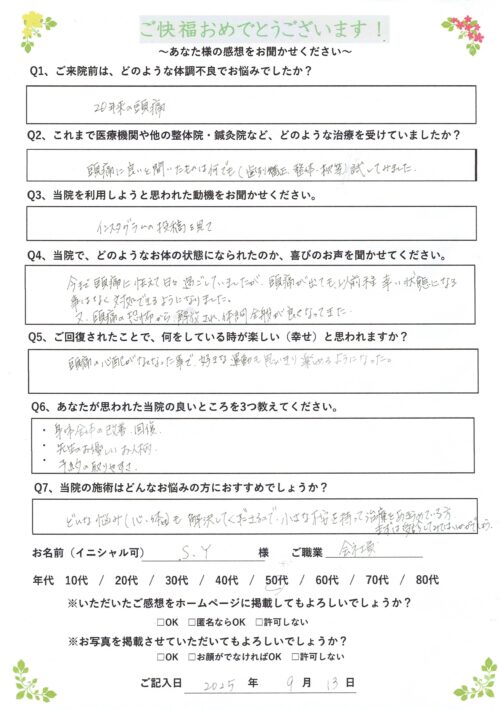 ご快福おめでとうございます！
～あなた様の感想をお聞かせください～
Q1、ご来院前は、どのような体調不良でお悩みでしたか？
20年来の頭痛
Q2、これまで医療機関や他の整体院・鍼灸院など、どのような治療を受けていましたか？
頭痛に良いと聞いたものは何でも(歯列矯正、整体、枕等)試してみました。
Q3、当院を利用しようと思われた動機をお聞かせください。
インスタグラムの投稿を見て
Q4、当院で、どのようなお体の状態になられたのか、喜びのお声を聞かせてください。
今まで頭痛に怯えて日々過ごしていましたが、頭痛が出ても以前程辛い状態になる
事はなく対処できるようになりました。
又、頭痛の恐怖から解放され、体調全般が良くなってきた。
Q5、ご回復されたことで、何をしている時が楽しい（幸せ）と思われますか？
頭痛の心配がなくなった事で、好きな運動も思いきり楽めるようになった。
Q6、あなたが思われた当院の良いところを3つ教えてください。
・身体全体の改善、回復
・先生のお優しいお人柄
・予約の取りやすさ
Q7、当院の施術はどんなお悩みの方におすすめでしょうか？
どんな悩み(心・体)も解決してくださるので、小さな不安を持って治療をあきらめている方
お名前（イニシャル可） S.Y 様 ご職業 会社員
年代 10代 / 20代 / 30代 / 40代 / 50代 / 60代 / 70代 / 80代
※いただいたご感想をホームページに掲載してもよろしいでしょうか？
□OK □匿名ならOK □許可しない
※お写真を掲載させていただいてもよろしいでしょうか？
□OK □お顔がでなければOK □許可しない
ご記入日 2025 年 9 月 13 日